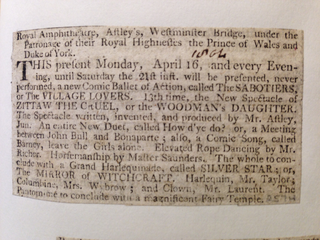 Royal Amphitheatre, Astley's, Westminster Bridge, under the
Patronage of their Royal Highnesses the Prince of Wales and
Duke of York.
1804
THIS present Monday, April 16, and every Even-
ing, until Saturday the 21st inst. will be presented, never
performed, a new Comic Ballet of Action, called The SABOTIERS,
or The VILLAGE LOVERS. 13th time, the New Spectacle of
ZITTAW THE CRUEL, or the WOODMAN's DAUGHTER.
The Spectacle written, invented, and produced by Mr. Astley,
Jun. An entire New Duet, called How d'ye do? or, a Meeting
between John Bull and Bonaparte; also, a Comic Song, called
Barney, leave the Girls alone. Elevated Rope Dancing by Mr.
Richer. Horsemanship by Master Saunders. The whole to con-
clude with a Grand Harlequinade, called SILVER STAR; or,
The MIRROR of WITCHCRAFT. Harlequin, Mr. Taylor;
Columbine, Mrs. Wybrow; and Clown, Mr. Laurent. The
Pantomime to conclude with a magnificent Fairy Temple.